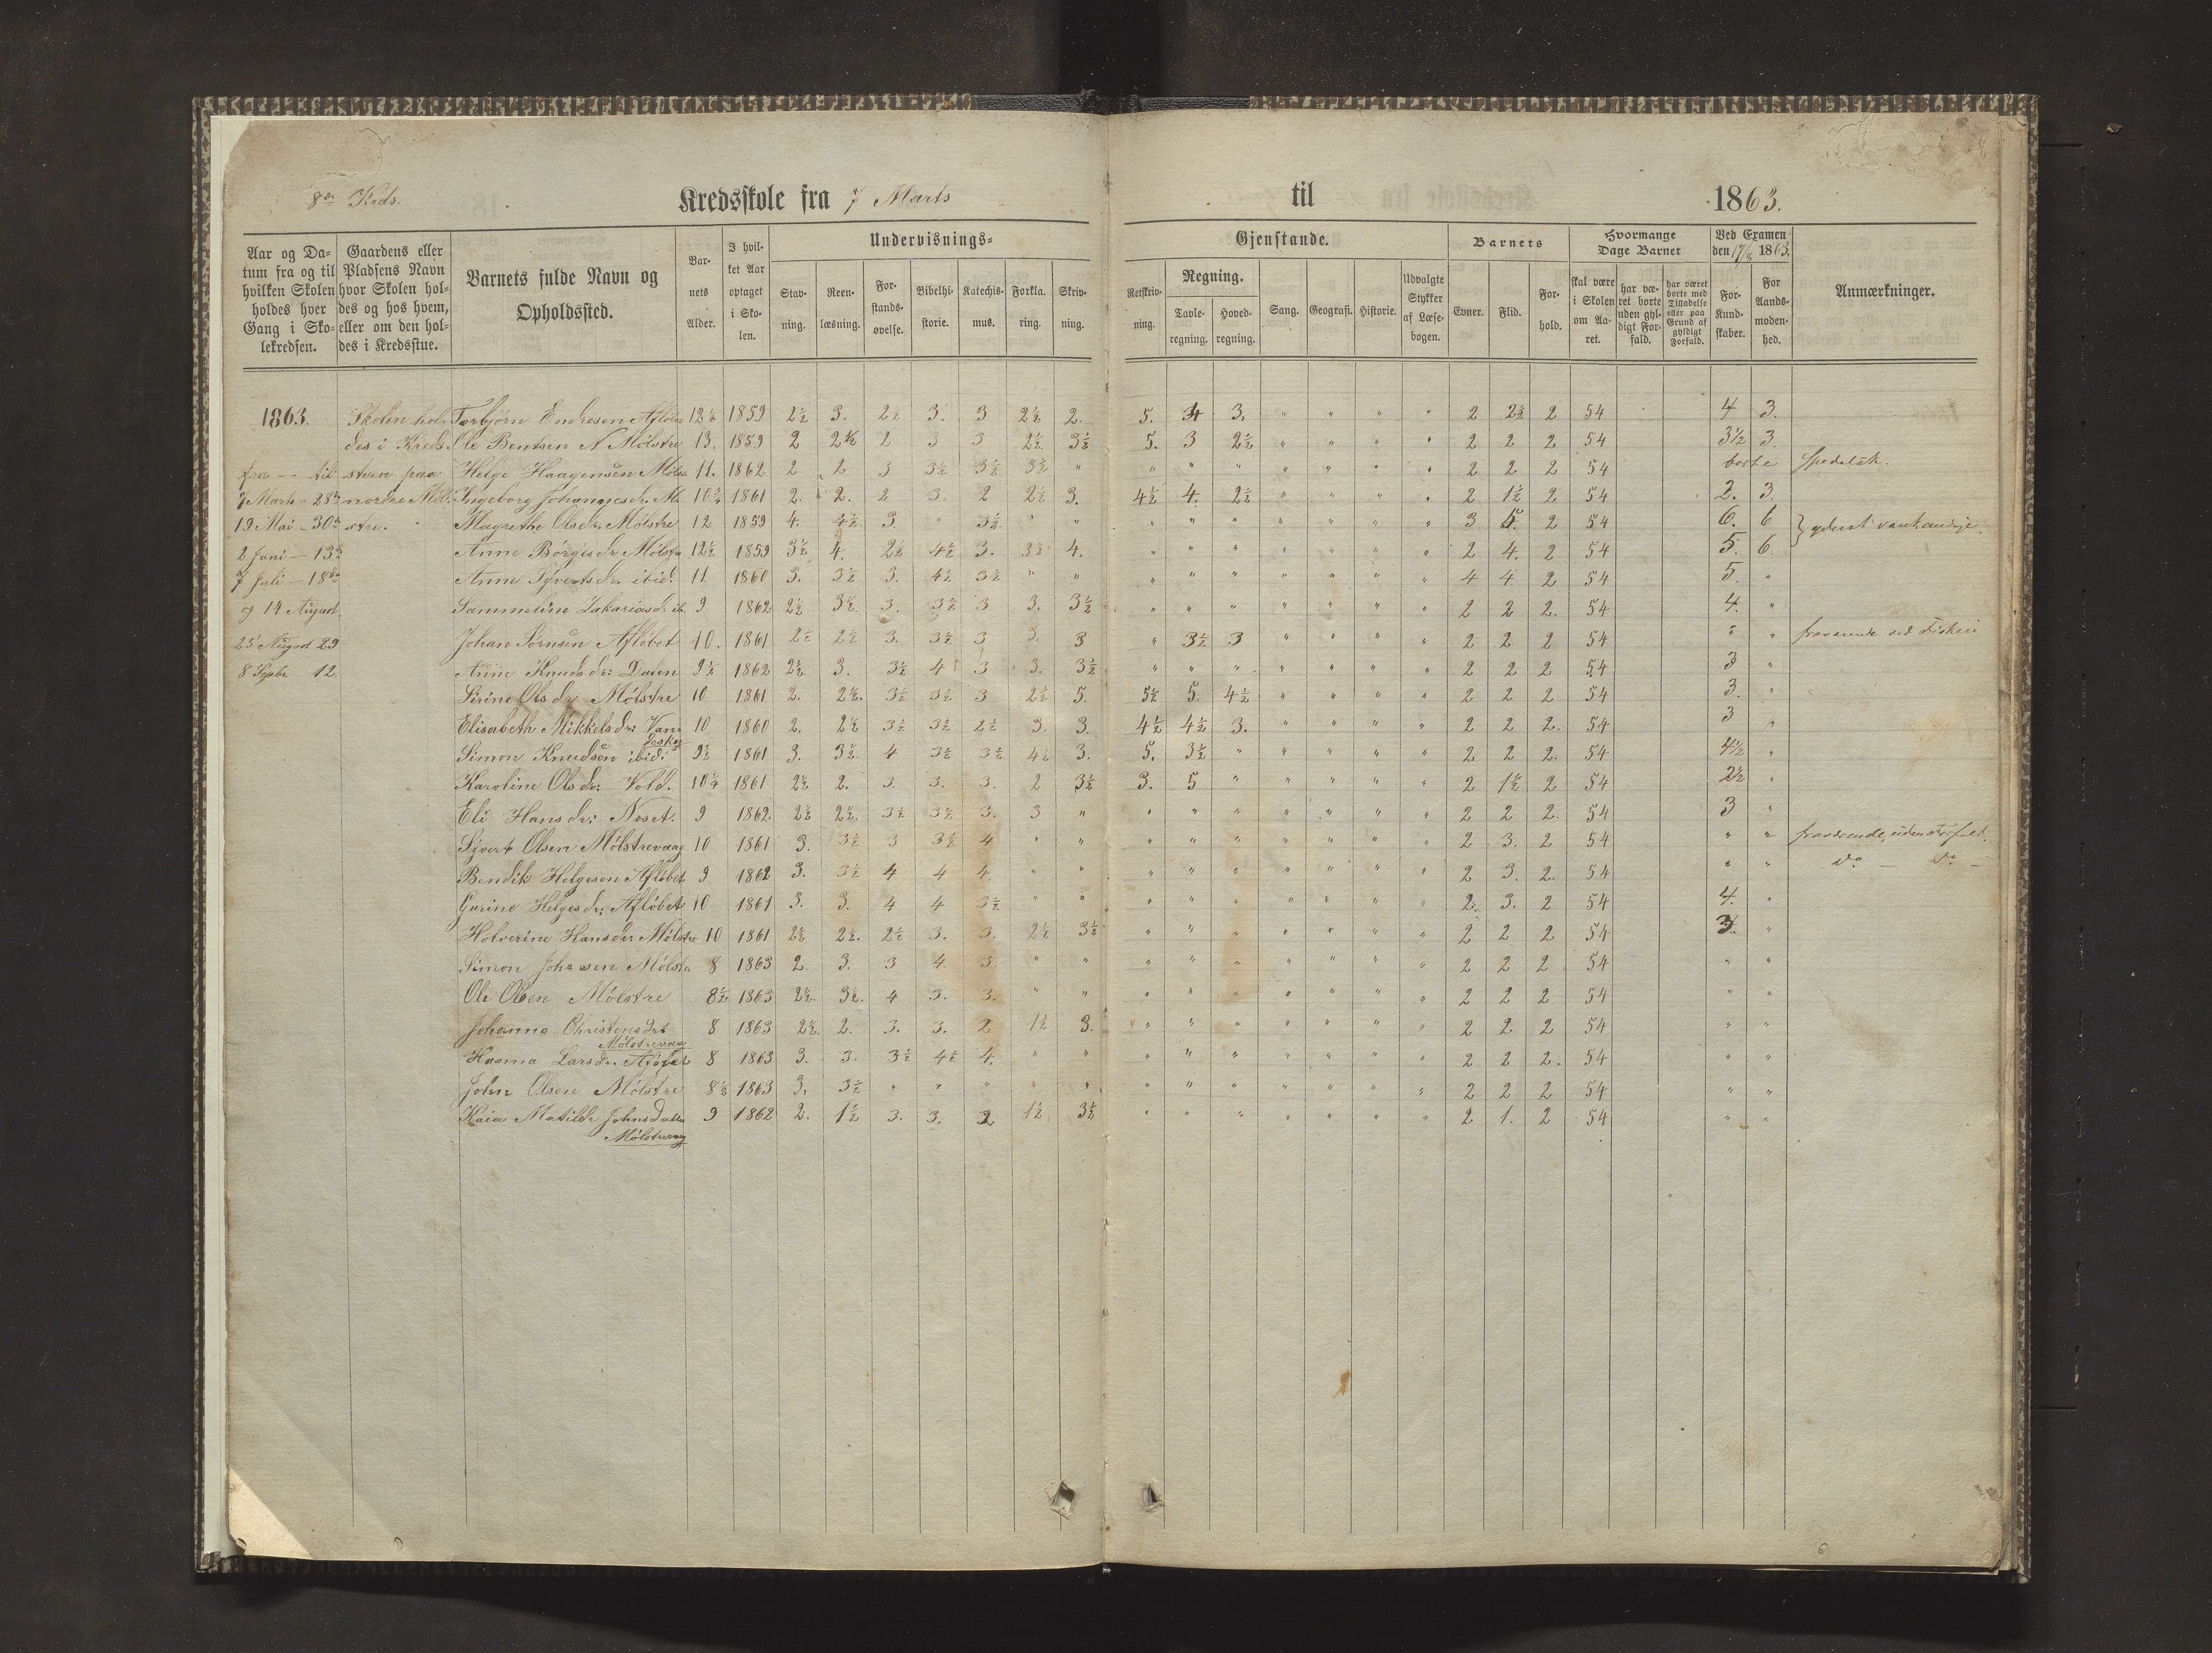 8de Krds. Kredsskole fra 7 Marts til 1863.
Aar og Datum fra og til hvilken Skolen holdes hver Gang i Skolekredsen. | Gaardens eller Pladsens Navn hvor Skolen holdes og hos hvem, eller om den holdes i Kredsstue. | Barnets fulde Navn og Opholdssted. | Barnets Alder. | I hvilket Aar optaget i Skolen. | Undervisnings- Gjenstande. | Barnets | Hvormange Dage Barnet | Ved Examen den 17/8 1863. | Anmærkninger.
Stavning. | Reenlæsning. | Forstandsøvelse. | Bibelhistorie. | Katechismus. | Forklaring. | Skrivning. | Retskrivning. | Regning. Tavleregning. | Hovedregning. | Sang. | Geografi. | Historie. | Udvalgte Stykker af Læsebogen. | Evner. | Flid. | Forhold. | skal være i Skolen om Aaret. | har været borte uden gyldigt Forfald. | har været borte med Tilladelse eller paa Grund af gyldigt Forfald. | For Kundskaber. | For Aandsmodenhed.
1863. Skolen hol- Torbjörn Endresen Aflöbet 12½ 1859 2½ 3. 2½ 3. 3 2½ 2. 5. 3 3. " " " " 2 2½ 2 54 4 3.
des i Kreds- Ole Bentsen N Mölstre 13. 1859 2 2½ 2 3 3 2½ 3½ 5. 3 2½ " " " " 2 2 2 54 3½ 3.
fra — til stuen paa Helge Haagensön Mölst 11. 1862 2 2 3 3½ 3½ 3½ " " " " " " " " 2 2 2 54 borte spedalsk.
7 Marts - 28de nordre Möl- Ingeborg Johannesdr. Mö 10¾ 1861 2. 2. 2 3. 2 2½ 3. 4½ 4. 2½ " " " " 2 1½ 2 54 2. 3.
19 Mai - 30te stre. Magrethe Olsdr. Mölstre 12 1859 4. 4½ 3. " 3½ " " " " " " " " " 3 5. 2 54 6. 6 } yderst vankundige.
2 Juni — 13de Anne Börgesdr Mölstre 12½ 1859 3½ 4. 2½ 4½ 3. 3½ 4. " " " " " " " 2 4. 2 54 5. 6
7 Juli — 18de Anne Syvertsdr. ibid. 11 1860 3. 3½ 3. 4½ 3½ " " " " " " " " " 4 4 2 54 5. "
og 14 August. Sammeline Zakariasdr. ib. 9 1862 2½ 3½ 3. 3½ 3 3. 3½ " " " " " " " 2 2 2. 54 4. "
25 August 29 Johan Törnsön Aflöbet 10. 1861 2½ 2½ 3. 3½ 3 3. 3 " 3½ 3 " " " " 2 2 2 54 " " fraværende ved Fiskeri
8 Septbr 12. Anne Knudsdr: Dalen 9½ 1862 2½ 3. 3½ 4 3 3. 3½ " " " " " " " 2 2 2 54 3 "
Sirine Olsdr Mölstre 10 1861 2. 2½. 3½ 3½ 3 2½ 5. 5½ 5. 4½ " " " " 2 2 2 54 3. "
Elisabeth Mikkelsdr: Van- 10 1860 2. 2½ 3½ 3½ 2½ 3. 3. 4½ 4½ 3. " " " " 2 2 2. 54 3 "
Simon Knudsön ibid: 9½ 1861 3. 3½ 4 3½ 3½ 4½ 3. 5. 3½ " " " " " 2 2 2. 54 4½ "
Karoline Olsdr: Vold. 10¼ 1861 2½ 2. 3. 3. 3. 2 3½ 3. 5 " " " " " 2 1½ 2 54 2½ "
Eli Hansdr: Neset. 9 1862. 2½ 2½. 3½ 3½ 3. 3 " " " " " " " " 2 2 2. 54 3 "
Syvert Olsen Mölstrevaag 10 1861 3. 3½ 3 3½ 4 " " " " " " " " " 2 3. 2 54 " " fraværende, uden Forfald.
Bendik Helgesen Aflöbet 9 1862 3. 3½ 4 4 4. " " " " " " " " " 2 3. 2. 54 " " do — do —
Gurine Helgesdr: Aflöbet 10 1861 3. 3. 4 4 3½ " " " " " " " " " 2. 3. 2 54 4. "
Holverine Hansdr Mölstre 10 1861 2½ 2½. 2½ 3. 3. 2½ 3½ " " " " " " " 2 2 2 54 3. "
Simon Johnsen Mölstre 8 1863 2. 3. 3 4. 3. " " " " " " " " " 2 2 2 54 " "
Ole Olsen Mölstre 8½ 1863 2½. 3½. 4 3. 3. " " " " " " " " " 2 2 2 54 " "
Johanne Christensdet 8 1863 2½. 2. 3. 3. 2 1½ 3. " " " " " " " 2 2. 2 54 " "
Mölstrevaag
Larsdr. Aflöbet 8 1863 3. 3. 3½ 4½ 4. " " " " " " " " " 2 2 2. 54 " "
John Olsen Mölstre 8½ 1863 3. 3½ " " " " " " " " " " " " 2 2 2 54 " "
Kaia Matilde Johnsdatter 9 1862 2. 1½ 3. 3. 2 1½ 3½ " " " " " " " 2 1. 2 54 " "
Mölstrevaag